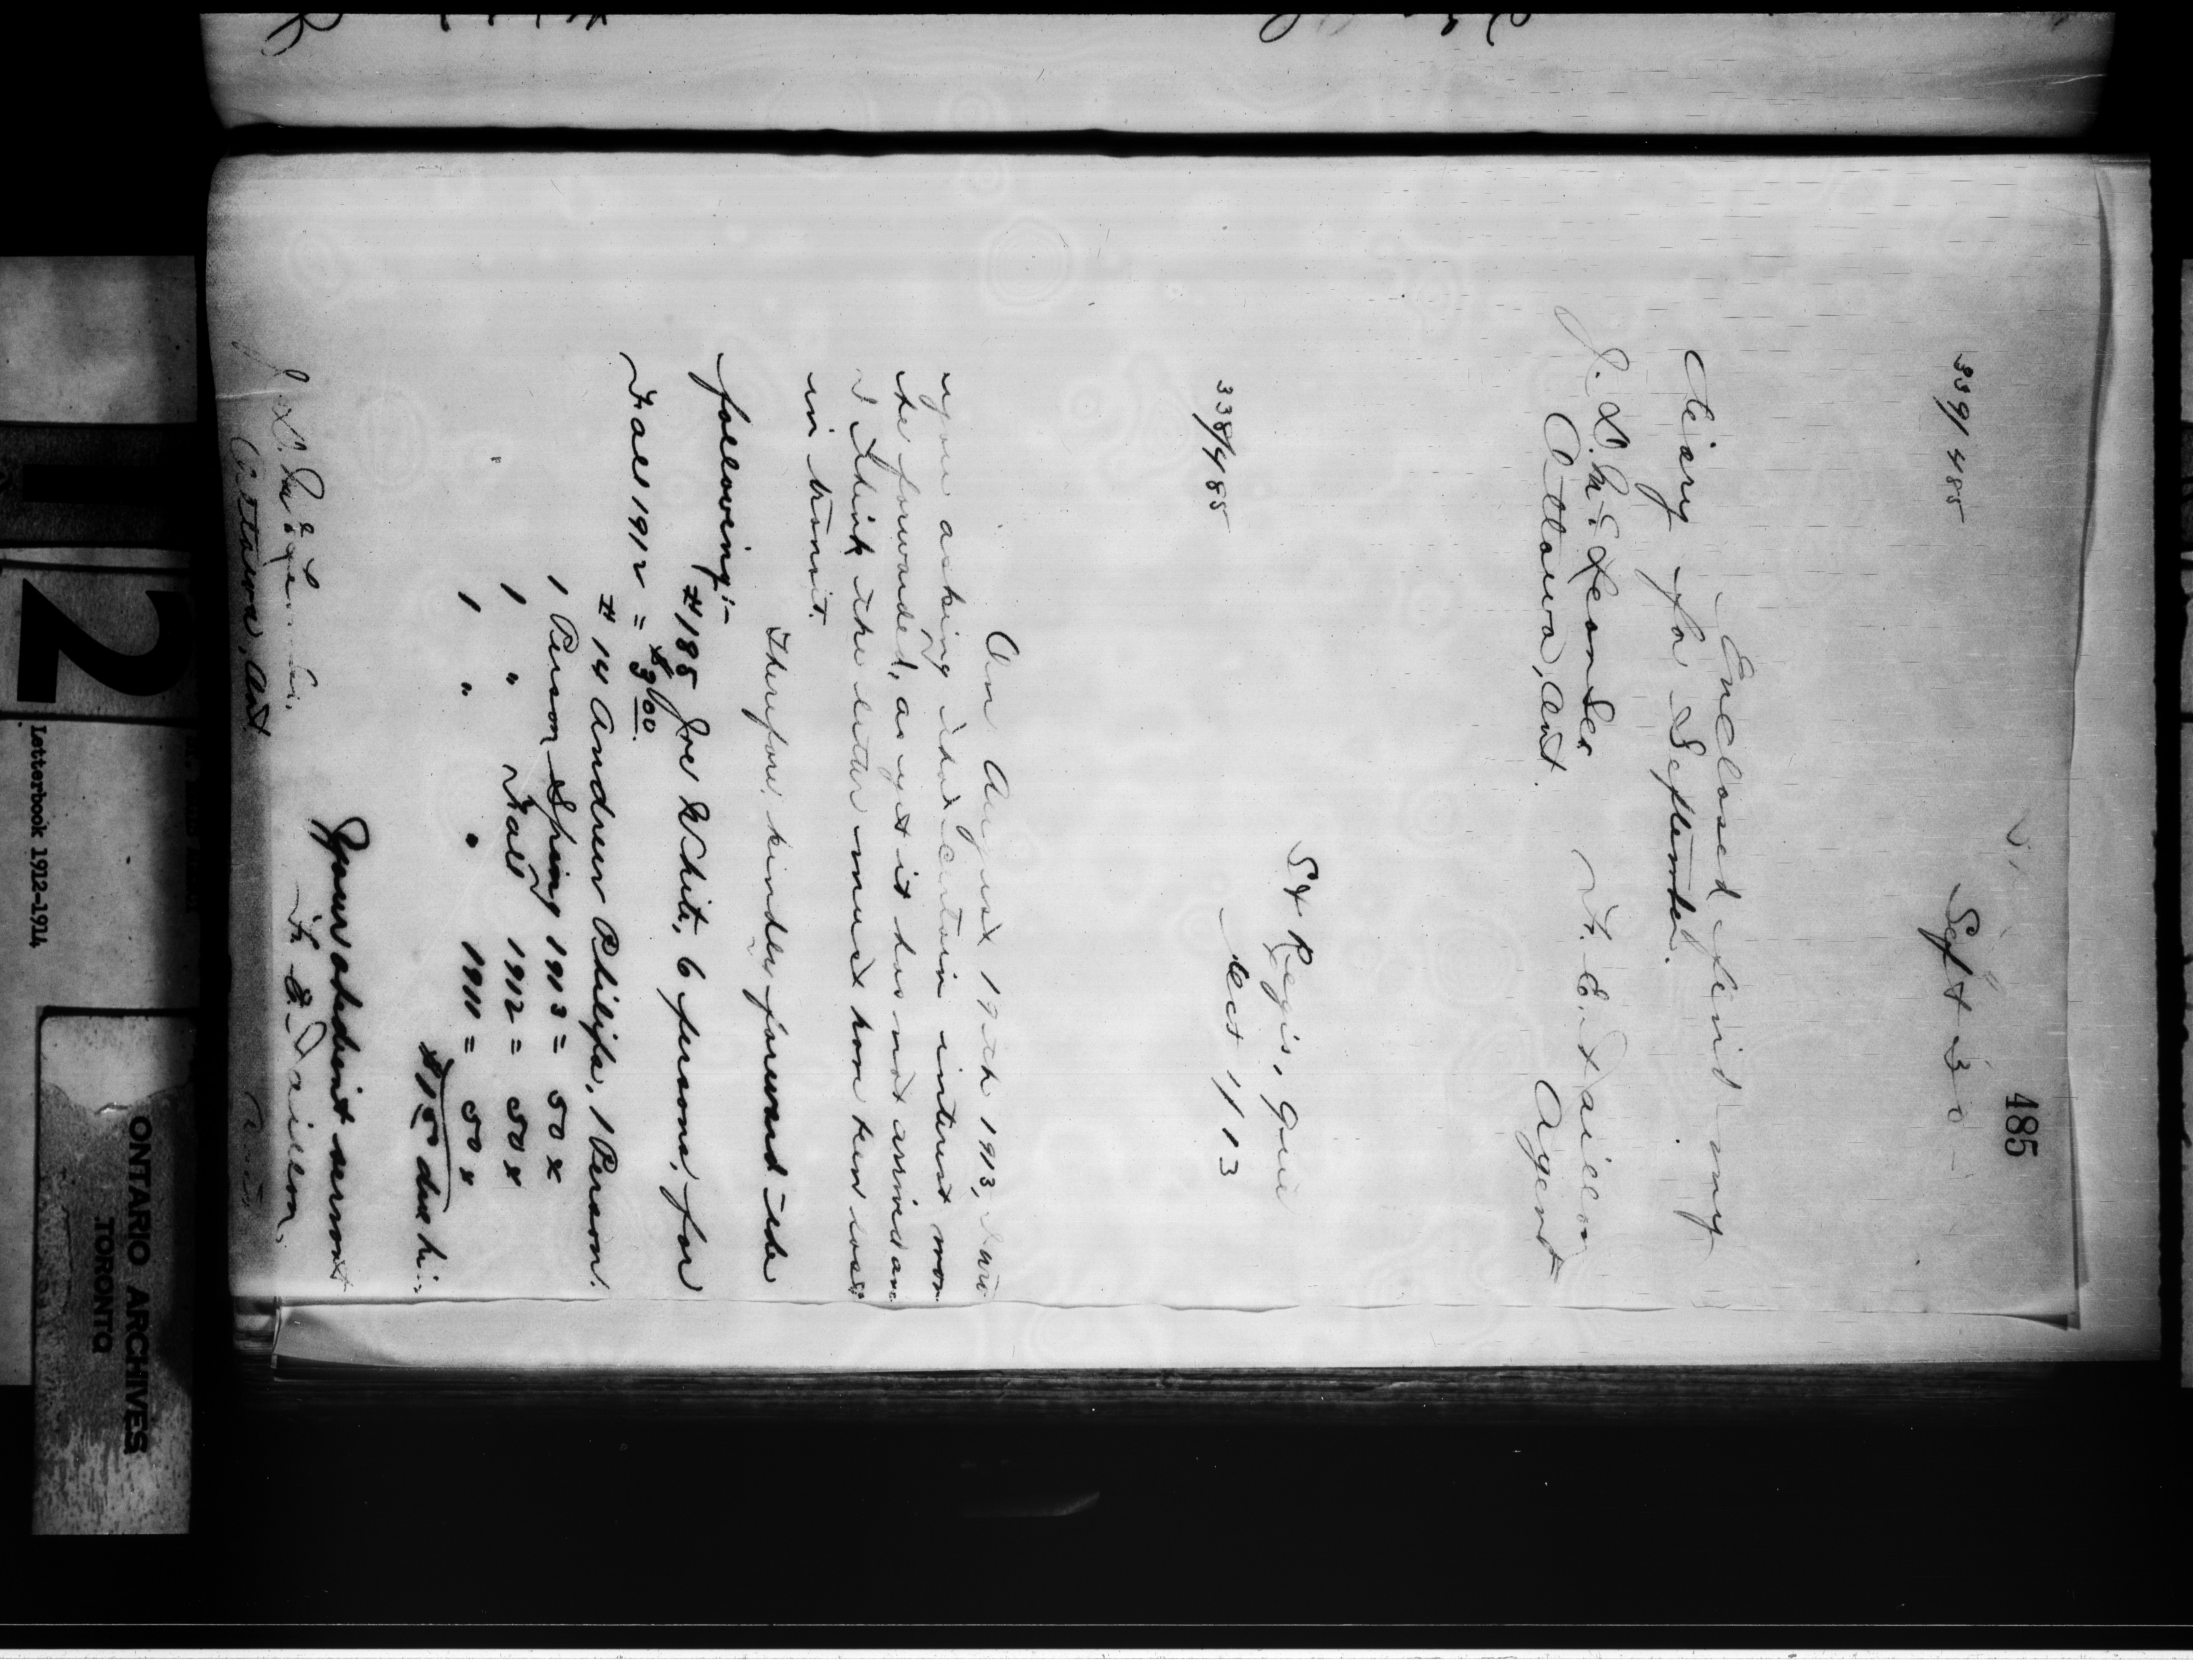 485
339/485
Sept 30
Enclosed find my
diary for September.
F. E. Taillon
J. D. McLean Sec
Agent
Ottawa, Ont.
St Regis, Que
338/485
Oct 1/13
On August 19th 1913, I wro
you asking that certain interest mon
be forwarded, as yet it has not arrived an
I think the letter must have been lost
in transit.
Therefore, kindly forward the
following:-
#185 Joe White, 6 persons, for
Fall 1912 = $3.00
#14 Andrew Philips, 1 Person.
1 Person Spring 1913 = 50 x
1 " Fall 1912 = 50 x
1 " " 1911 = 50 x
$1.50 due hi
Your obedient servant
F. E. Taillon,
J. D. McLean
Ottawa, Ont
12
Letterbook 1912-1914
ONTARIO ARCHIVES
TORONTO